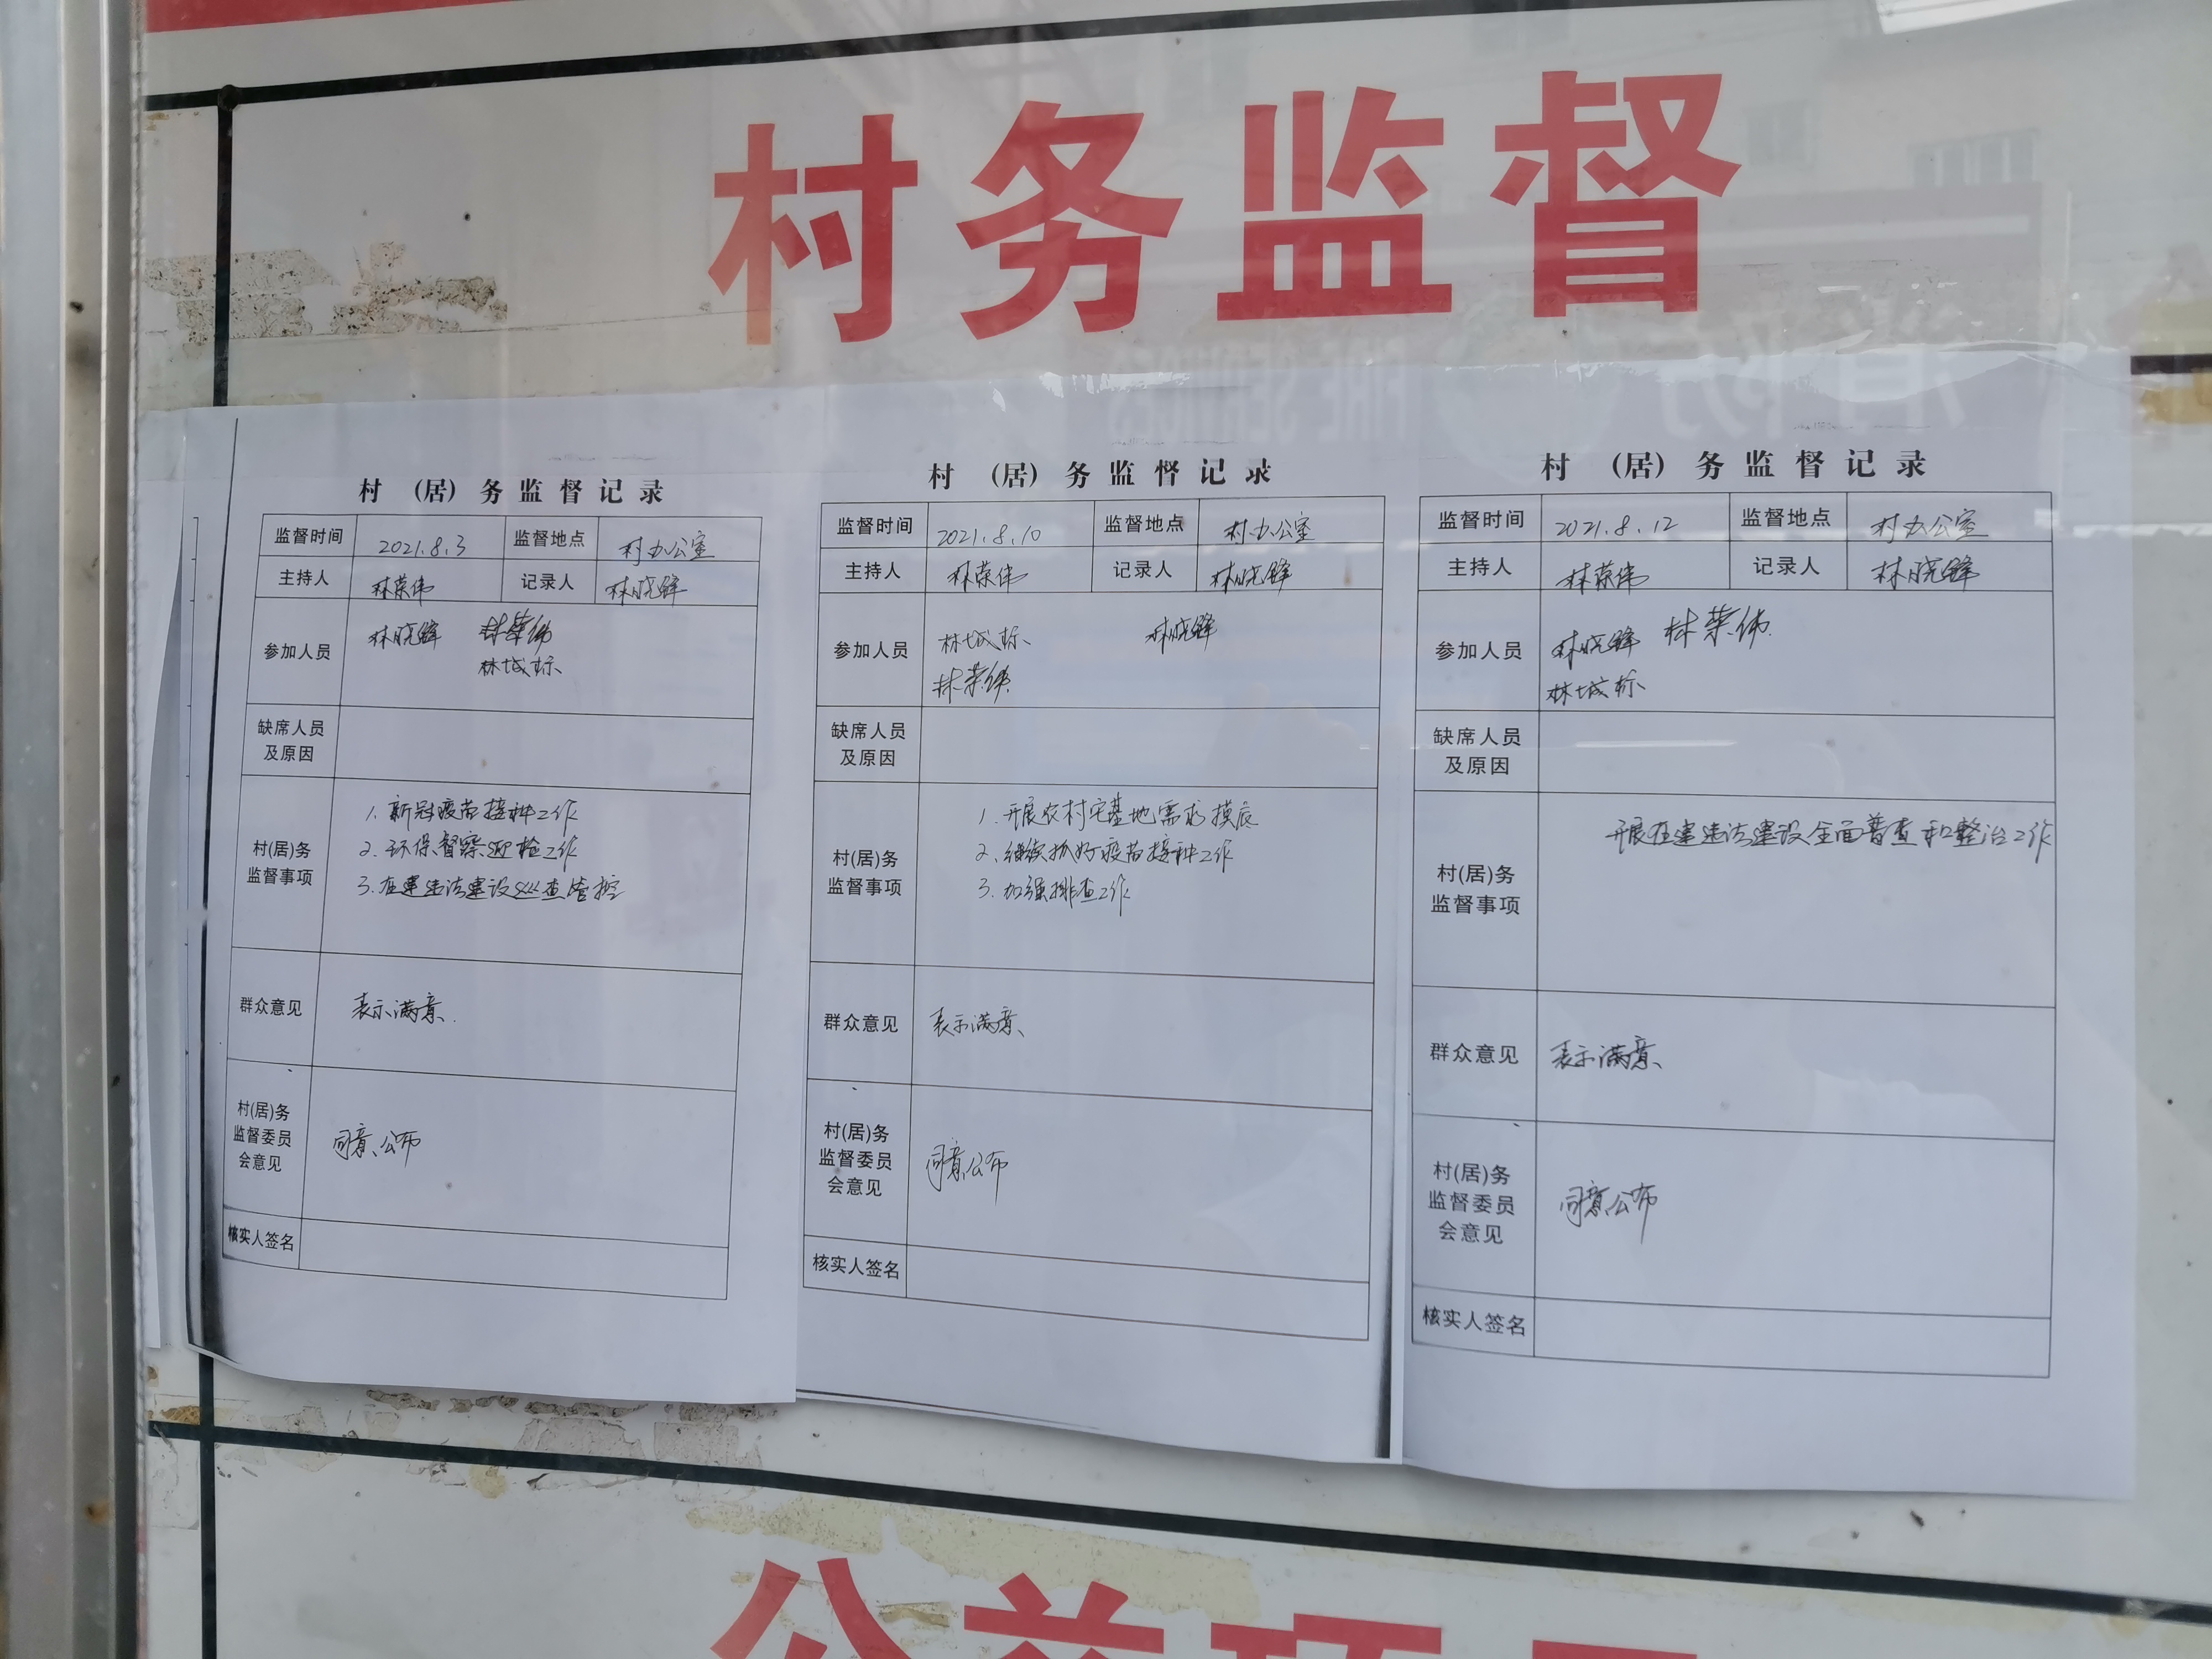 村务监督
村 （居）务监督记录
监督时间 2021.8.3 监督地点 村办公室
主持人 林荣伟 记录人 林晓锋
参加人员 林晓锋 林荣伟
林城标
缺席人员
及原因
村(居)务
监督事项
1.新冠疫苗接种工作
2.环保督察迎检工作
3.在建违法建设巡查管控
群众意见 表示满意.
村(居)务
监督委员
会意见
同意公布
核实人签名
村 （居）务监督记录
监督时间 2021.8.10 监督地点 村办公室
主持人 林荣伟 记录人 林晓锋
参加人员 林城标 林晓锋
林荣伟
缺席人员
及原因
村(居)务
监督事项
1.开展农村宅基地需求摸底
2.继续抓好疫苗接种工作
3.加强排查工作
群众意见 表示满意
村(居)务
监督委员
会意见
同意公布
核实人签名
村 （居）务监督记录
监督时间 2021.8.12 监督地点 村办公室
主持人 林荣伟 记录人 林晓锋
参加人员 林晓锋 林荣伟
林城标
缺席人员
及原因
村(居)务
监督事项
开展在建违法建设全面普查和整治工作
群众意见 表示满意
村(居)务
监督委员
会意见
同意公布
核实人签名
公益项目